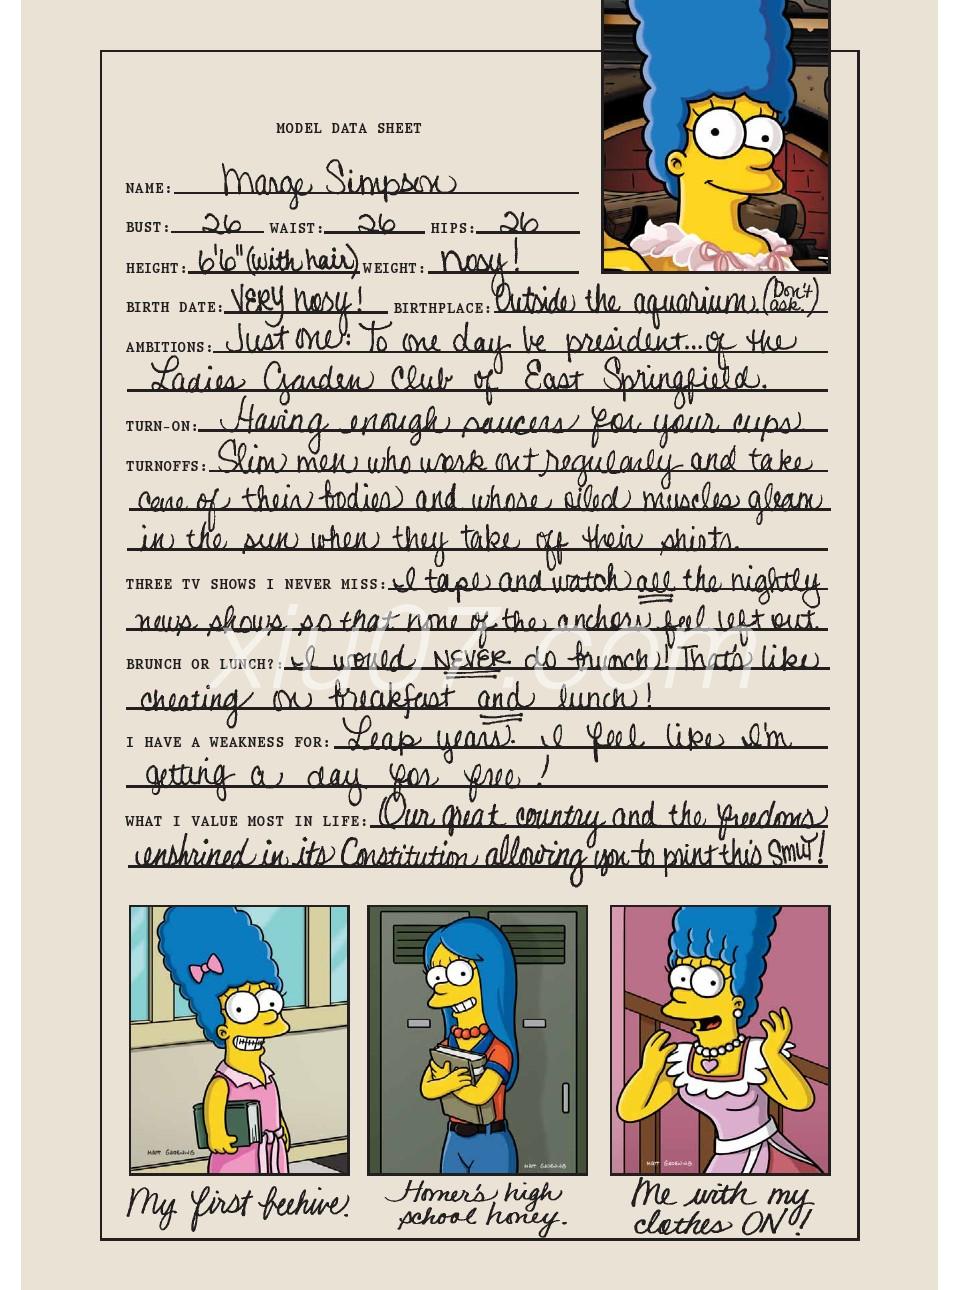 MODEL DATA SHEET
NAME: Marge Simpson
BUST: 26 WAIST: 26 HIPS: 26
HEIGHT: 6'6" (with hair) WEIGHT: nosy!
BIRTH DATE: VERY nosy! BIRTHPLACE: Outside the aquarium. (Don't ask.)
AMBITIONS: Just one: To one day be president...of the
Ladies Garden Club of East Springfield.
TURN-ON: Having enough saucers for your cups.
TURNOFFS: Slim men who work out regularly and take
care of their bodies and whose oiled muscles gleam
in the sun when they take off their shirts.
THREE TV SHOWS I NEVER MISS: I tape and watch all the nightly
news shows so that none of the anchors feel left out.
xiu07.com
BRUNCH OR LUNCH?: I would NEVER do brunch! That's like
cheating on breakfast and lunch!
I HAVE A WEAKNESS FOR: Leap years. I feel like I'm
getting a day for free!
WHAT I VALUE MOST IN LIFE: Our great country and the freedoms
enshrined in its Constitution allowing you to print this smut!
MATT GROENING
MATT GROENING
MATT GROENING
My first beehive.
Homer's high
school honey.
Me with my
clothes ON!!